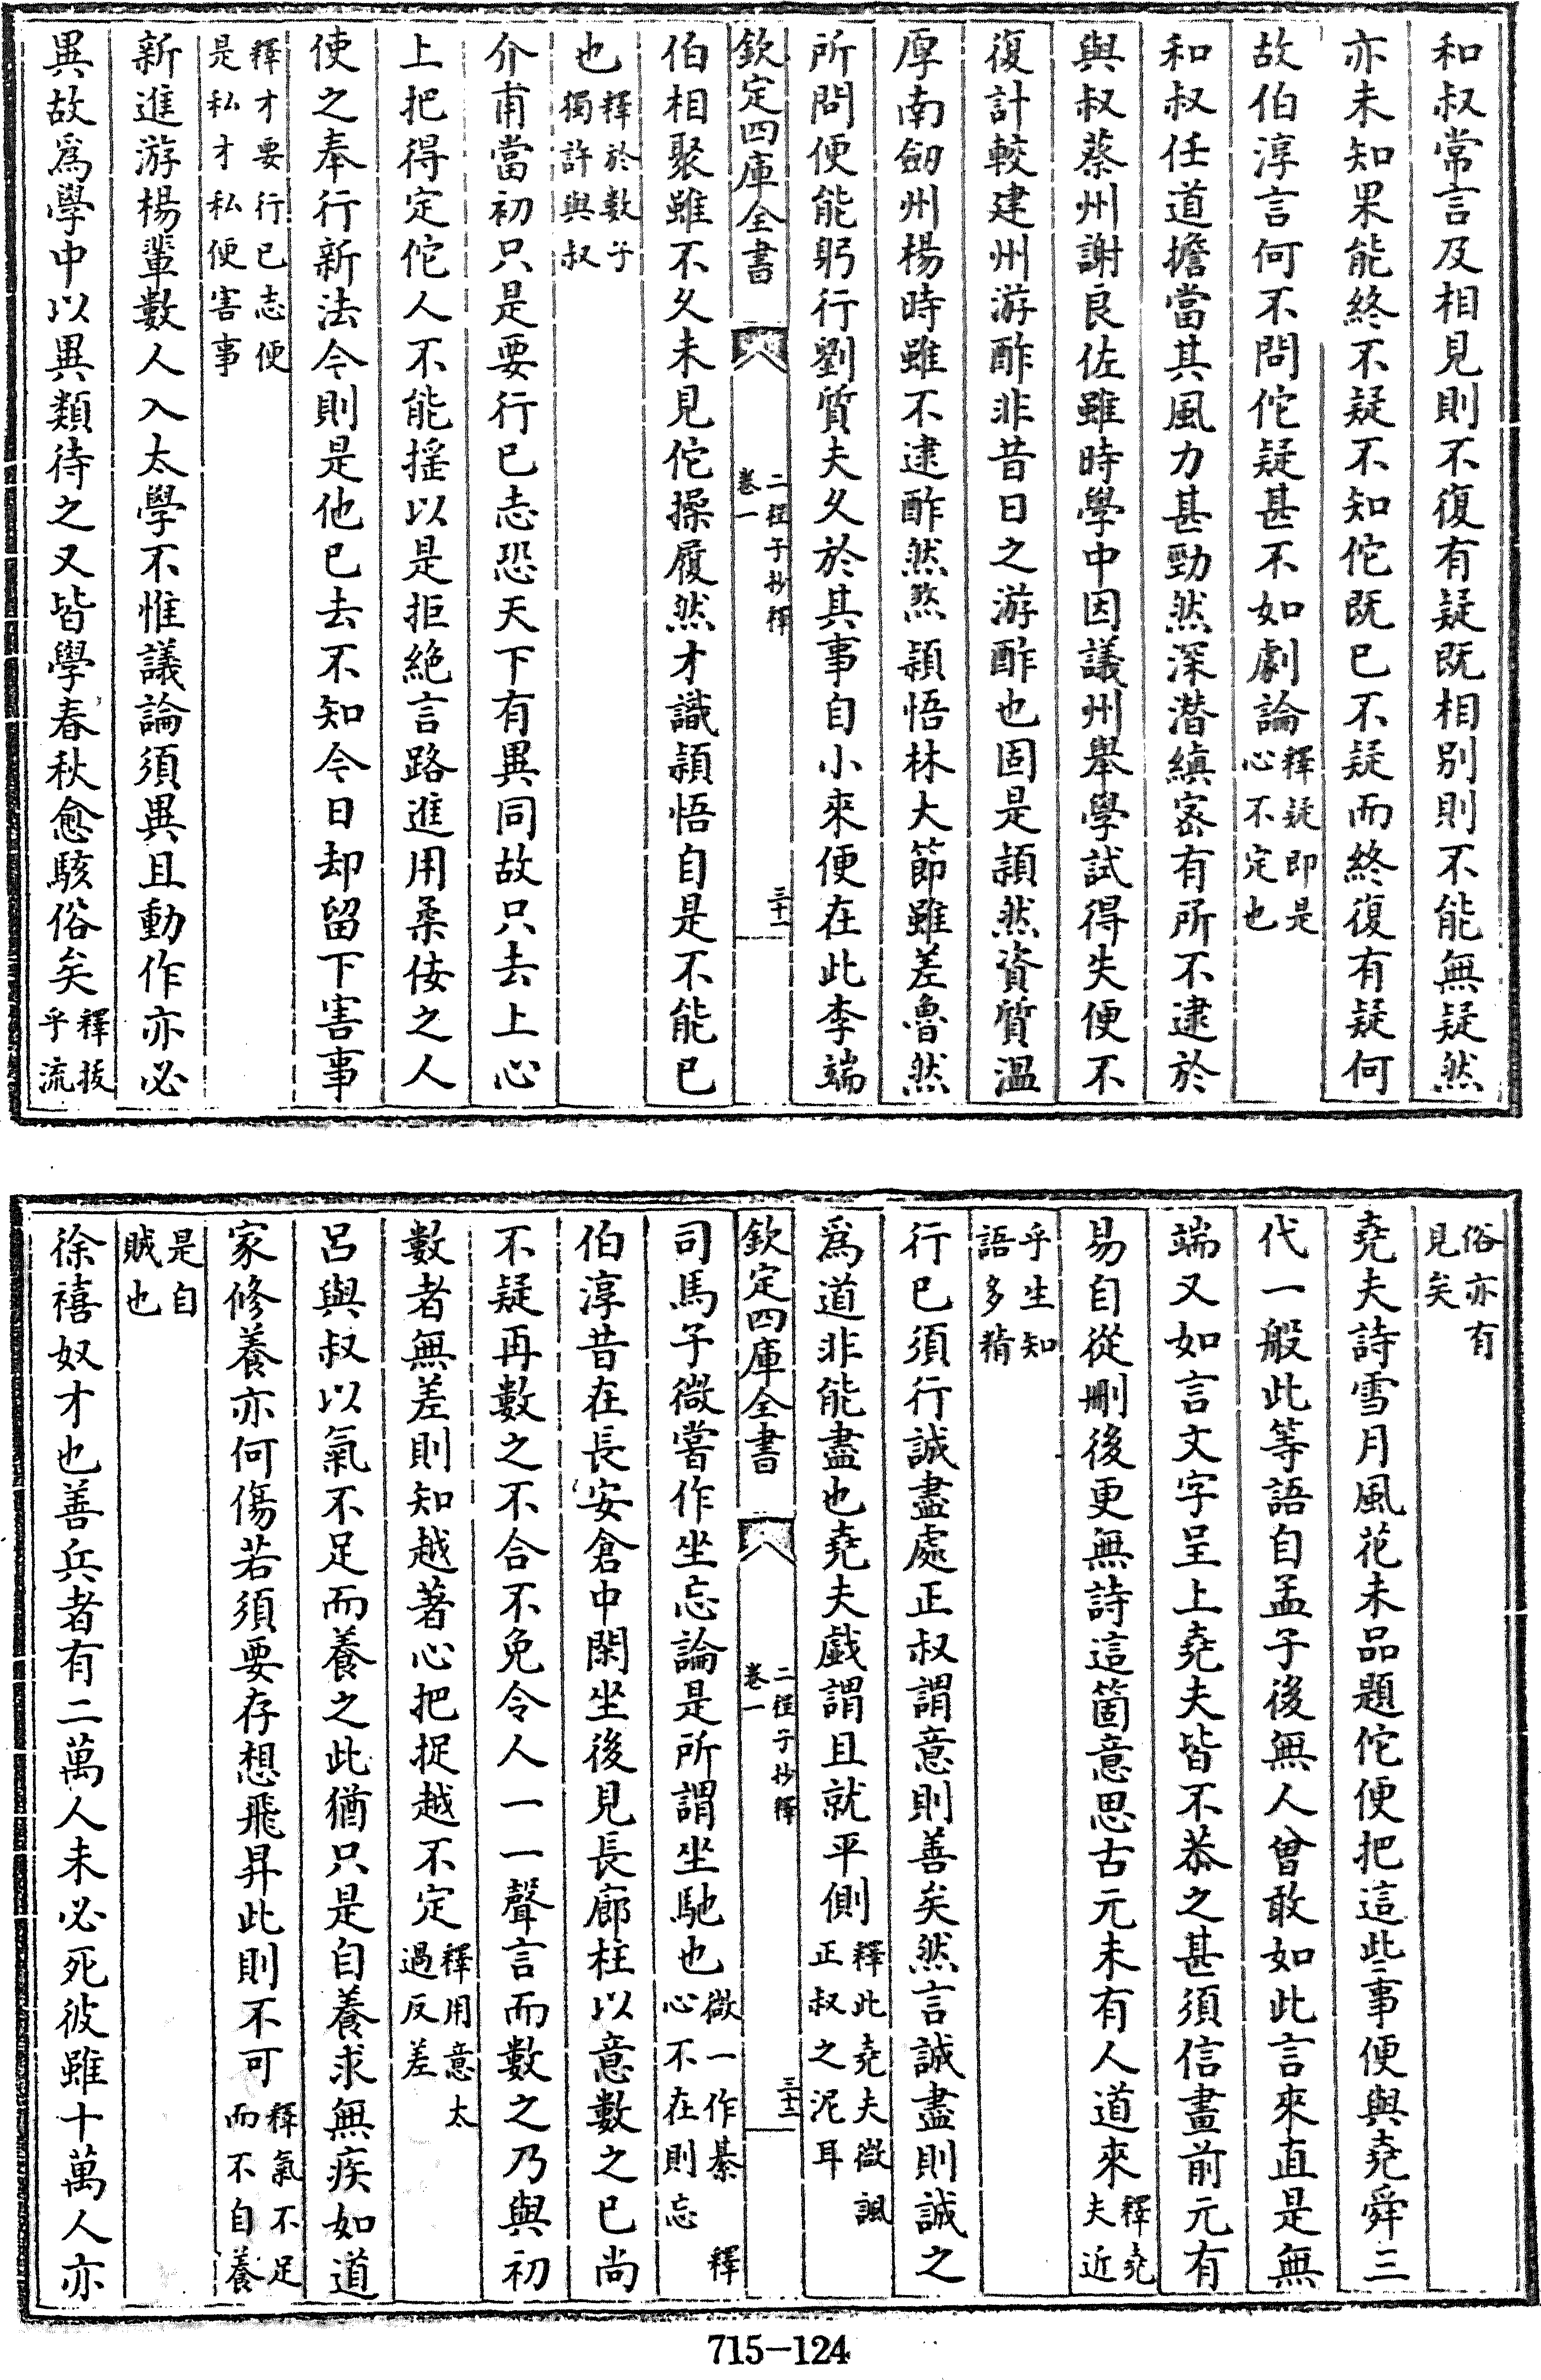 和叔常言及相見則不復有疑既相別則不能無疑然
亦未知果能終不疑不知佗既已不疑而終復有疑何
故伯淳言何不問佗疑甚不如劇論釋疑即是心不定也
和叔任道擔當其風力甚勁然深潛縝宻有所不逮於
與叔蔡州謝良佐雖時學中因議州舉學試得失便不
復計較建州游酢非昔日之游酢也固是頴然資質溫
厚南劒州楊時雖不逮酢然煞頴悟林大節雖差魯然
所問便能躬行劉質夫久於其事自小來便在此李端
欽定四庫全書
二程子抄釋
卷一
三十一
伯相聚雖不久未見佗操履然才識頴悟自是不能已
也釋於數子獨許與叔
介甫當初只是要行已志恐天下有異同故只去上心
上把得定佗人不能搖以是拒絶言路進用柔佞之人
使之奉行新法今則是他已去不知今日却留下害事
釋才要行已志便是私才私便害事
新進游楊輩數人入太學不惟議論須異且動作亦必
異故爲學中以異類待之又皆學春秋愈駭俗矣釋拔乎流
俗亦有見矣
堯夫詩雪月風花未品題佗便把這些事便與堯舜三
代一般此等語自孟子後無人曾敢如此言來直是無
端又如言文字呈上堯夫皆不恭之甚須信畫前元有
易自從刪後更無詩這箇意思古元未有人道來釋堯夫近
乎生知語多精
行已須行誠盡處正叔謂意則善矣然言誠盡則誠之
爲道非能盡也堯夫戯謂且就平側釋此堯夫微諷正叔之泥耳
欽定四庫全書
二程子抄釋
卷一
三十二
司馬子微嘗作坐忘論是所謂坐馳也微一作綦 釋心不在則忘
伯淳昔在長安倉中閑坐後見長廊柱以意數之已尚
不疑再數之不合不免令人一一聲言而數之乃與初
數者無差則知越著心把捉越不定釋用意太過反差
呂與叔以氣不足而養之此猶只是自養求無疾如道
家修養亦何傷若須要存想飛昇此則不可釋氣不足而不自養
是自賊也
徐禧奴才也善兵者有二萬人未必死彼雖十萬人亦
715-124